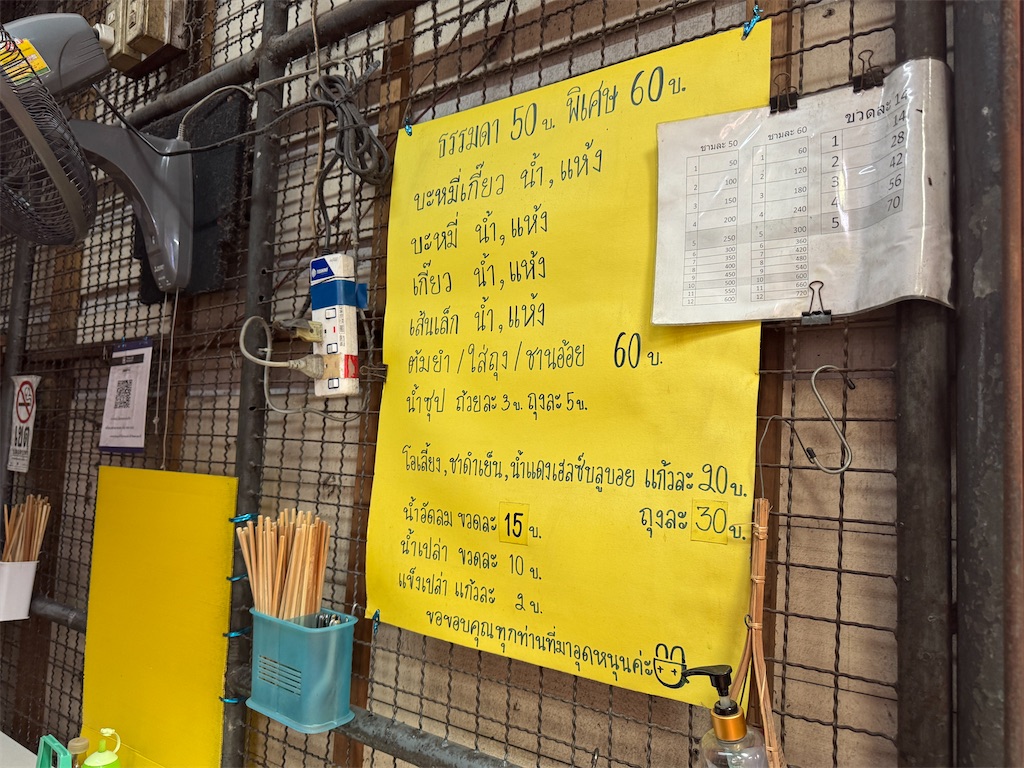 ธรรมดา 50 บ. พิเศษ 60 บ.
บะหมี่เกี๊ยว น้ำ, แห้ง
บะหมี่ น้ำ, แห้ง
เกี๊ยว น้ำ, แห้ง
เส้นเล็ก น้ำ, แห้ง
ต้มยำ / ใส่ถุง / ชานอ้อย 60 บ.
น้ำซุป ถ้วยละ 3 บ. ถุงละ 5 บ.
โอเลี้ยง, ชาดำเย็น, น้ำแดงเฮลซ์บลูบอย แก้วละ 20 บ.
ถุงละ 30 บ.
น้ำอัดลม ขวดละ 15 บ.
น้ำเปล่า ขวดละ 10 บ.
แข็งเปล่า แก้วละ 2 บ.
ขอขอบคุณทุกท่านที่มาอุดหนุนค่ะ
ชามละ 50
1 50
2 100
3 150
4 200
5 250
6 300
7 350
8 400
9 450
10 500
11 550
12 600
ชามละ 60
1 60
2 120
3 180
4 240
5 300
6 360
7 420
8 480
9 540
10 600
11 660
12 720
ขวดละ 14
1 14
2 28
3 42
4 56
5 70
เขต